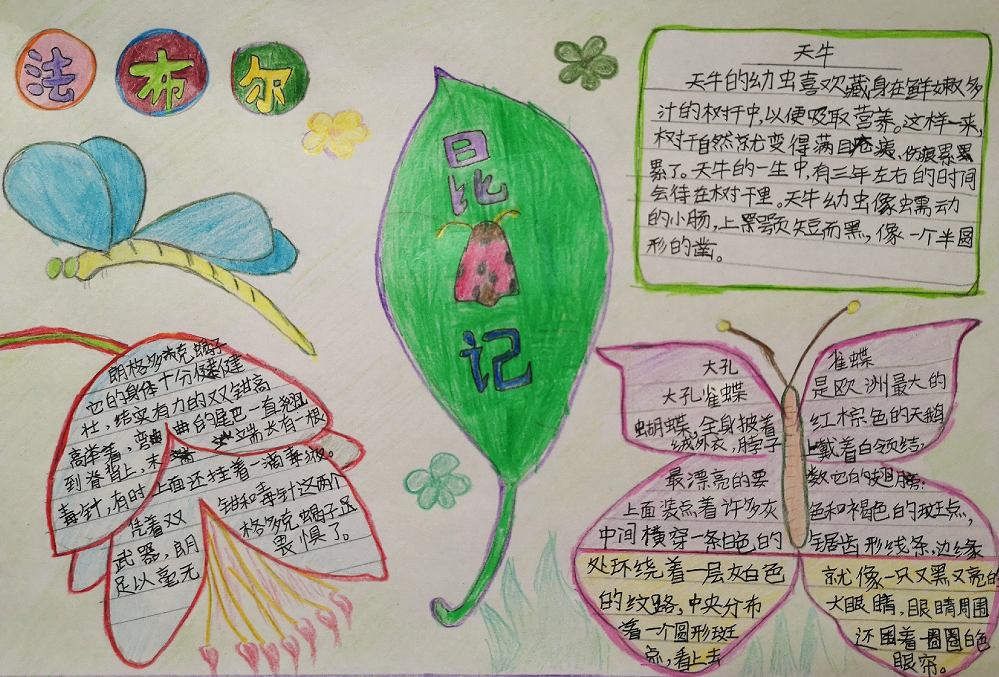 法布尔
昆
虫
记
天牛
天牛的幼虫喜欢藏身在鲜嫩多
汁的树干中，以便吸取营养。这样一来，
树干自然就变得满目疮痍、伤痕累
累了。天牛的一生中，有三年左右的时间
会待在树干里。天牛幼虫像蠕动
的小肠，上黑颚短而黑，像一个半圆
形的凿。
朗格多克蝎子
它的身体十分健
壮，结实有力的双钳高
高举着，弯曲的尾巴一直翘
到脊背上，末端长有一根
毒针，有时上面还挂着一滴毒液。
凭着双钳和毒针这两个
武器，朗格多克蝎子足
足以毫无畏惧了。
大孔雀蝶
大孔雀蝶是欧洲最大的
蝴蝶，全身披着红棕色的天鹅
绒外衣，脖子上戴着白领结。
最漂亮的要数它的翅膀：
上面装点着许多灰色和褐色的斑点，
中间横穿一条白色的锯齿形线条，边缘
处环绕着一层灰白色
的纹路，中央分布
着一个圆形斑
点，看上去
就像一只又黑又亮的
大眼睛，眼睛周围
还围着一圈圈白色
眼帘。